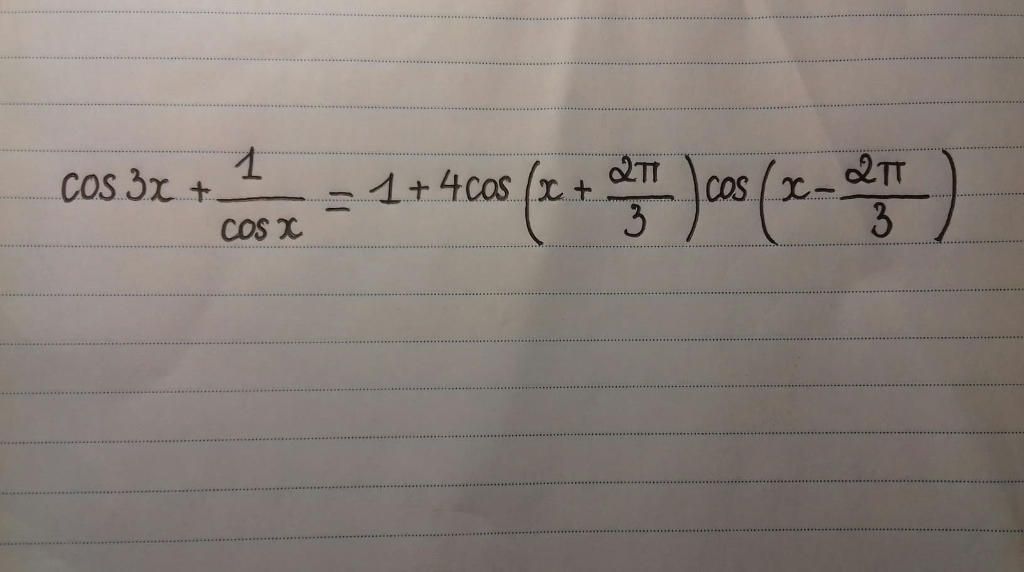 cos 3x + \frac{1}{cos x} = 1 + 4cos (x + \frac{2π}{3}) cos (x - \frac{2π}{3})